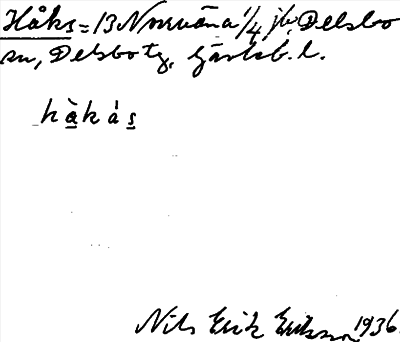 Håks = 13 Norrväna 1/4 jb, Delsbo
sn, Delsbo tg, Gävleb. l.
hàkás
Nils Erik Eriksson 1936.